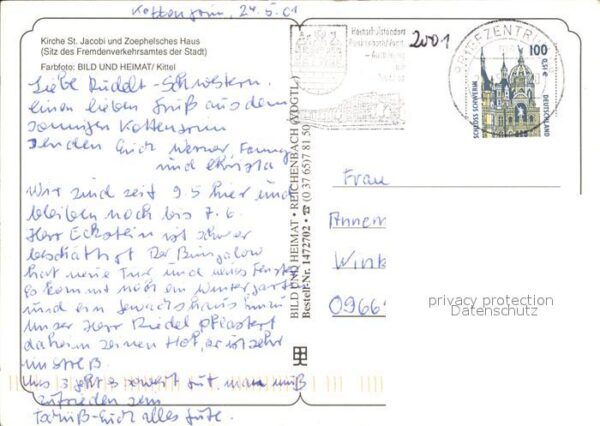 Kottengrün, 24.5.01
Kirche St. Jacobi und Zoephelsches Haus
(Sitz des Fremdenverkehrsamtes der Stadt)
Farbfoto: BILD UND HEIMAT/ Kittel
Liebe Rudolt-Schwestern.
einen lieben Gruß aus dem
sonnigen Kottengrün
senden Euch Werner Fanny
und Christa
Wir sind seit 9 5 hier und
bleiben noch bis 7. 6.
Herr Eckstein ist schwer
beschäftigt Der Bungalow
hat neue Tür und neues Fenster
es kommt noch ein Wintergarten
und ein Gewächshaus hinzu
unser Herr Riedel pflastert
daheim seinen Hof, er ist sehr
im Streß.
Uns 3 geht es soweit gut man muß
zufrieden sein
Tschüß Euch alles Gute.
BILD UND HEIMAT • REICHENBACH (VOGTL.)
Bestell-Nr. 1472702 • ☎ (0 37 65) 7 81 50
2001
BRIEFZENTRUM
100
0,51€
SCHLOSS SCHWERIN
DEUTSCHLAND
Frau
Annem
Wink
0966
privacy protection
Datenschutz